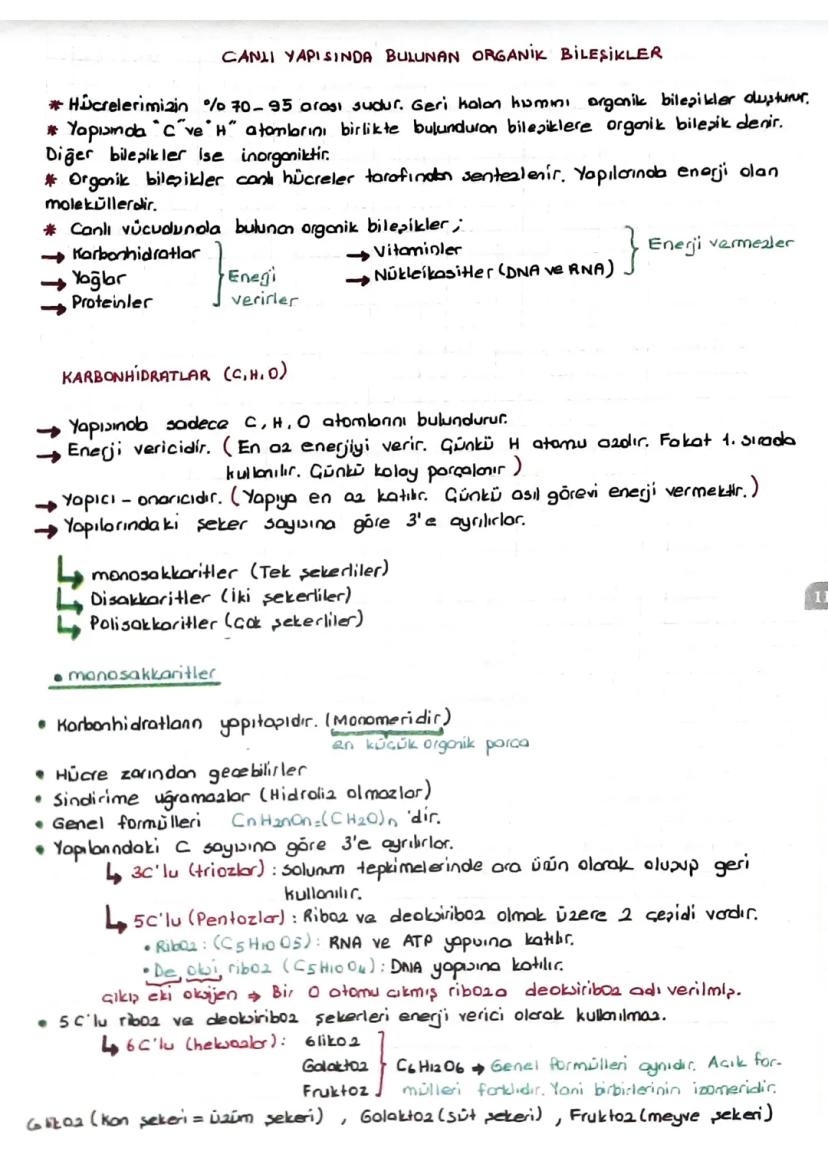 CANLI YAPISINDA BULUNAN ORGANİK BİLEŞİKLER
* Hücrelerimizin %70-95 arası sudur. Geri kalan kısmını organik bileşikler oluşturur.
* Yapısında "C" ve "H" atomlarını birlikte bulunduran bileşiklere organik bileşik denir.
Diğer bileşikler ise inorganiktir.
* Organik bileşikler canlı hücreler tarafından sentezlenir. Yapılarında enerji olan
moleküllerdir.
* Canlı vücudunda bulunan organik bileşikler;
→ Karbonhidratlar
→ Yağlar
→ Proteinler
Enerji
verirler
→ Vitaminler
→ Nükleikasitler (DNA ve RNA)
Enerji vermezler
KARBONHİDRATLAR (C,H,O)
→ Yapısında sadece C, H, O atomlarını bulundurur.
→ Enerji vericidir. (En az enerjiyi verir. Çünkü H atomu azdır. Fakat 1. sırada
kullanılır. Çünkü kolay parçalanır)
→ Yapıcı - onarıcıdır. (Yapıya en az katılır. Çünkü asıl görevi enerji vermektir.)
→ Yapılarındaki şeker sayısına göre 3'e ayrılırlar.
↳ monosakkaritler (Tek şekerliler)
↳ Disakkaritler (İki şekerliler)
↳ Polisakkaritler (Çok şekerliler)
11
• monosakkaritler
• Karbonhidratların yapıtaşıdır. (Monomeridir)
en küçük organik parça
• Hücre zarından geçebilirler
• Sindirime uğramazlar (Hidroliz olmazlar)
• Genel formülleri CnH2nOn=(CH2O)n 'dir.
• Yapılarındaki C sayısına göre 3'e ayrılırlar.
↳ 3C'lu (triozlar) : solunum tepkimelerinde ara ürün olarak oluşup geri
kullanılır.
↳ 5C'lu (Pentozlar) : Riboz ve deoksiriboz olmak üzere 2 çeşidi vardır.
• Riboz : (C5H10O5) : RNA ve ATP yapısına katılır.
• De oksi riboz (C5H10O4) : DNA yapısına katılır.
çıkış eki oksijen → Bir O atomu çıkmış riboza deoksiriboz adı verilmiş.
• 5C'lu riboz ve deoksiriboz şekerleri enerji verici olarak kullanılmaz.
↳ 6C'lu (heksozlar) : Glikoz
Galaktoz
Fruktoz
C6H12O6 → Genel formülleri aynıdır. Açık for-
mülleri farklıdır. Yani birbirlerinin izomeridir.
Glikoz (Kan şekeri = üzüm şekeri) , Galaktoz (Süt şekeri) , Fruktoz (meyve şekeri)